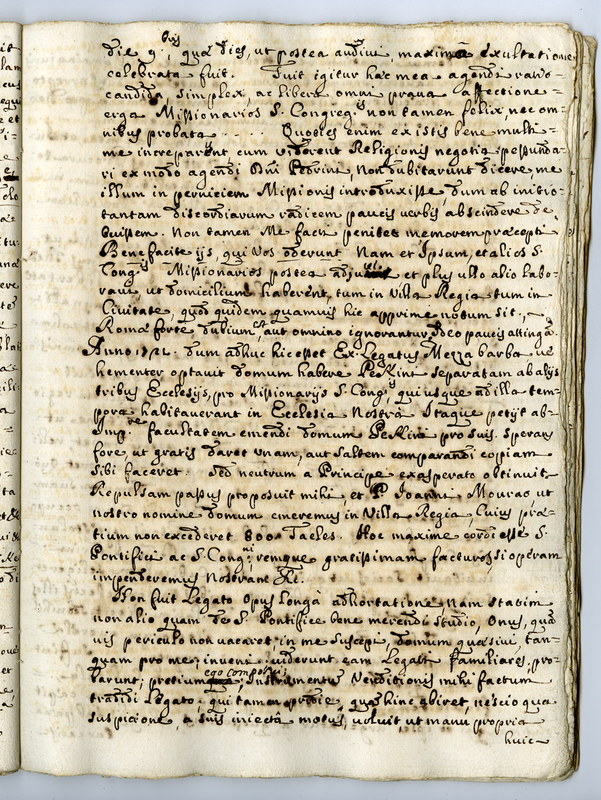 die 9.bris, quæ dies, ut postea audivi, maximâ exultatione
celebrata fuit. Fuit igitur hæc mea agendi ratio
candida, simplex, ac libera omni prava affectione
erga Missionarios S. Congreg.is non tamen felix, nec om-
nibus probata .... Quoties enim ex istis bene multi
me increparent, cum viderent Religionis negotia pessunda-
ri ex modo agendi Dni Pedrini, non dubitarunt dicere, me
illum in perniciem Missionis introduxisse, dum ab initio
tantam discordiarum radicem paucis verbis abscindere de-
buissem. Non tamen me facti penitet memorem præcepti
Benefacite ijs, qui vos oderunt. Nam et Ipsum, et alios S.
Cong.is Missionarios postea adjuvi et plus ullo alio labo-
ravi, ut domicilium haberent, tum in Villa Regia tum in
Civitate, quod quidem quamvis hic apprime notum sit,
Romæ forte dubium est, aut omnino ignoratur, ideo paucis attingã.
Anno 1721. dum adhuc hic esset Ex. Legatus Mezzabarba ve-
hementer optavit domum habere Pekini separatam ab alijs
tribus Ecclesijs, pro Missionarijs S. Cong.is qui usque ad illa tem-
pora habitaverant in Ecclesia Nostra. Itaque petijt ab
Imp.re facultatem emendi domum Pekini pro suis. Sperans
fore, ut gratis daret unam, aut saltem comparandi copiam
sibi faceret. Sed neutrum a Principe exasperato obtinuit.
Repulsam passus proposuit mihi, et P. Joanni Mourao ut
nostro nomine domum emeremus in Villa Regia, cuius præ-
tium non excederet 800. Taeles. Hoc maxime cordi esse S.
Pontifici ac S. Cong.ni, remque gratissimam facturos, si operam
impenderemus nostram &c.
Non fuit Legato opus longa adhortatione, nam statim
non alio quam de S. Pontifice bene merendi studio, onus, quam-
vis periculo non vacaret, in me suscepi, domum quæsivi, tan-
quam pro me; inveni; viderunt eam Legati familiares, pro-
barunt; pretium ego composui; Instrumentum venditionis mihi factum
tradidi Legato; qui tamen pridie, quam hinc abiret, nescio qua
suspicione, a suis injectâ motus, voluit, ut manu propria
huic